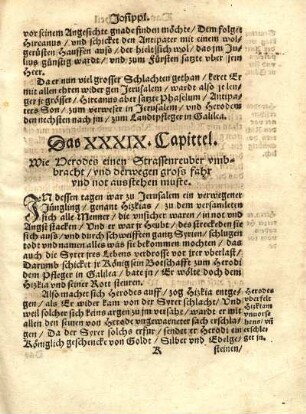 Josippi.
vor seinem Angesichte gnad finden möchte / Dem folget
Hircanus / vnd schicket den Antipater mit einem wol
gerüsten Hauffen auss / der hielt sich wol / das jm Ju
lius günstig wardt / vnd zum Fürsten satzt vber jen
Heer.
Da er nun viel grosser Schlachten gethan / keret Er
mit allen ehren wider gen Jerusalem / wardt also je len
ger je grösser / Hircanus aber satzte Phaselum / Antipa
ters Son / zum verweser in Jerusalem / vnd Herodem
den nechsten nach jm / zum Landtpfleger in Galilea.
Das XXXIX. Capittel.
Wie Herodes einen Strassenreuber vmb=
bracht / vnd derwegen gross fahr
vnd not ausstehen muste.
IN dessen tagen war zu Jerusalem ein verwegener
Jüngling / genant Hizkias / zu dem versamleten
sich alle Menner / die vnsicher waren / in not vnd
Angst stacken / Vnd er war je Heubt / des strecket der sie
sich auss / vnd durchschweifften gantz Syren / schlugen
todt vnd namen alles was sie bekommen mochten / das
auch die Syrer jres Lebens verdross vor jrer vberlast /
Darumb schickt je König sein Botschafft zum Herodi
dem Pfleger in Galilea / bat jn / Er wölte doch dem
Hizkia vnd seiner Rott stewren.
Also machet sich Herodes auff / zog Hizkia entge=
gen / als Er wider kam von der Syrer schlacht / Vnd
weil solcher sich keins argen zu jm versahe / wardt er mit
allen den seinen von Herodi vngewarneter sach erschla=
gen / Da der Syrer solchs erfur / sendet er Herodi ein
Königlich geschencke von Golde / Silber vnd Edelge=
Herodes
vberfelt
Hizkiam
vnuorse
hens / vn
erschlee
get jn.
K
steinen /